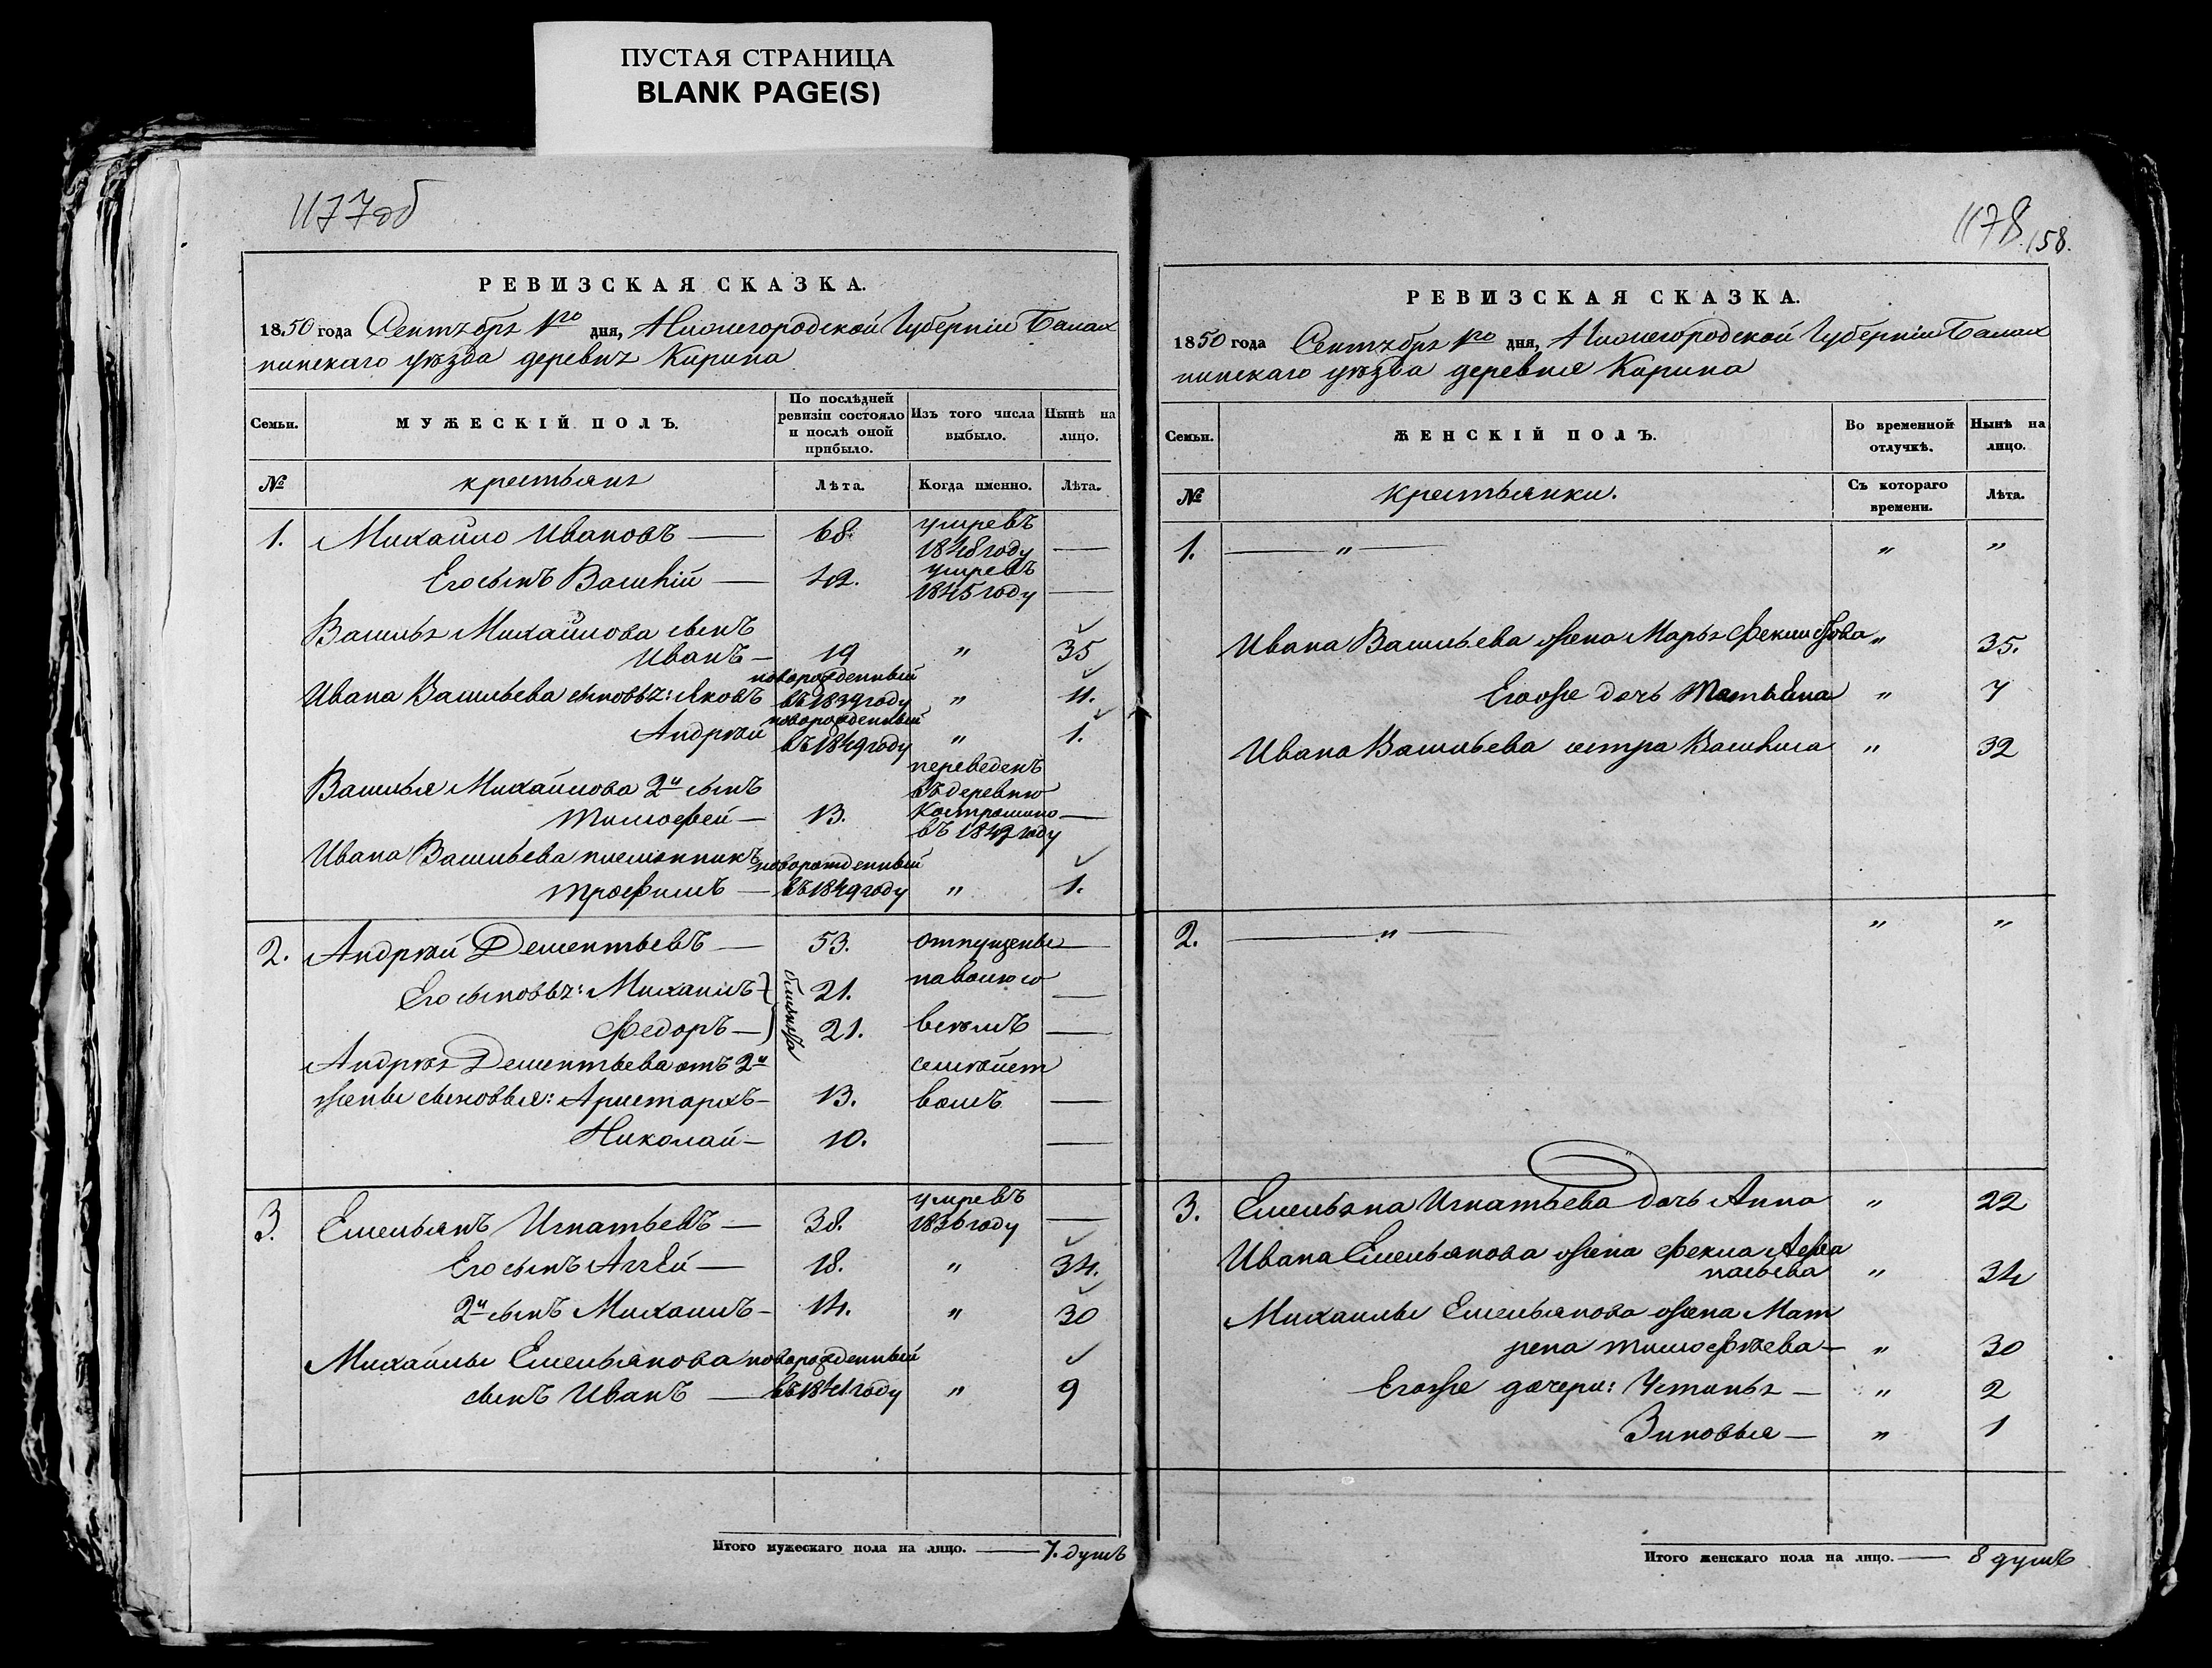 ПУСТАЯ СТРАНИЦА
BLANK PAGE(S)
1177об
РЕВИЗСКАЯ СКАЗКА.
1850 года Сентября 1го дня, Нижегородской Губерніи Балах
нинскаго уѣзда деревня Кирина
Семьи. МУЖЕСКІЙ ПОЛЪ. По послѣдней ревизіи состояло и послѣ оной прибыло. Изъ того числа выбыло. Нынѣ на лицо.
№ крестьяне Лѣта. Когда именно. Лѣта.
1. Михайло Ивановъ — 68. умревъ 1848 году —
Его сынъ Василій — 42. умревъ 1845 году —
Василья Михайлова сынъ
Иванъ — 19 " 35
Ивана Васильева сыновья: Яковъ новорожденный въ 1839 году " 11.
Андрѣй новорожденный въ 1849 году " 1.
Василья Михайлова 2й сынъ
Тимофей — 13. переведенъ въ деревню в 1849 году —
Ивана Васильева племянникъ
Трофимъ — новорожденный въ 1849 году " 1.
2. Андрѣй Дементьевъ — 53. отпущены —
Его сыновья: Михаилъ } близнецы 21. на волю со —
Федоръ — 21. всѣмъ —
Андрѣя Дементьева отъ 2й семѣйст
жены сыновья: Аристархъ — 13. вомъ —
Николай — 10. —
3. Емельянъ Игнатьевъ — 38. умревъ 1836 году —
Его сынъ Аггѣй — 18. " 34.
2й сынъ Михаилъ — 14. " 30
Михайлы Емельянова новорожденный
сынъ Иванъ — въ 1841 году " 9
Итого мужескаго пола на лицо. — 7. душъ
1178 158.
РЕВИЗСКАЯ СКАЗКА.
1850 года Сентября 1го дня, Нижегородской Губерніи Балах
нинскаго уѣзда деревня Кирина
Семьи. ЖЕНСКІЙ ПОЛЪ. Во временной отлучкѣ. Нынѣ на лицо.
№ крестьянки. Съ котораго времени. Лѣта.
1. — " — " "
Ивана Васильева жена Марья " 35.
Его же дочь Татьяна " 7
Ивана Васильева сестра Василиса " 32
2. — " — " "
3. Емельяна Игнатьева дочь Анна " 22
Ивана Емельянова жена Фекла Афа
насьева " 34
Михаилы Емельянова жена Мат
рена Тимофѣева — " 30
Его же дочери: Устинья — " 2
Зиновья — " 1
Итого женскаго пола на лицо. — 8 душъ